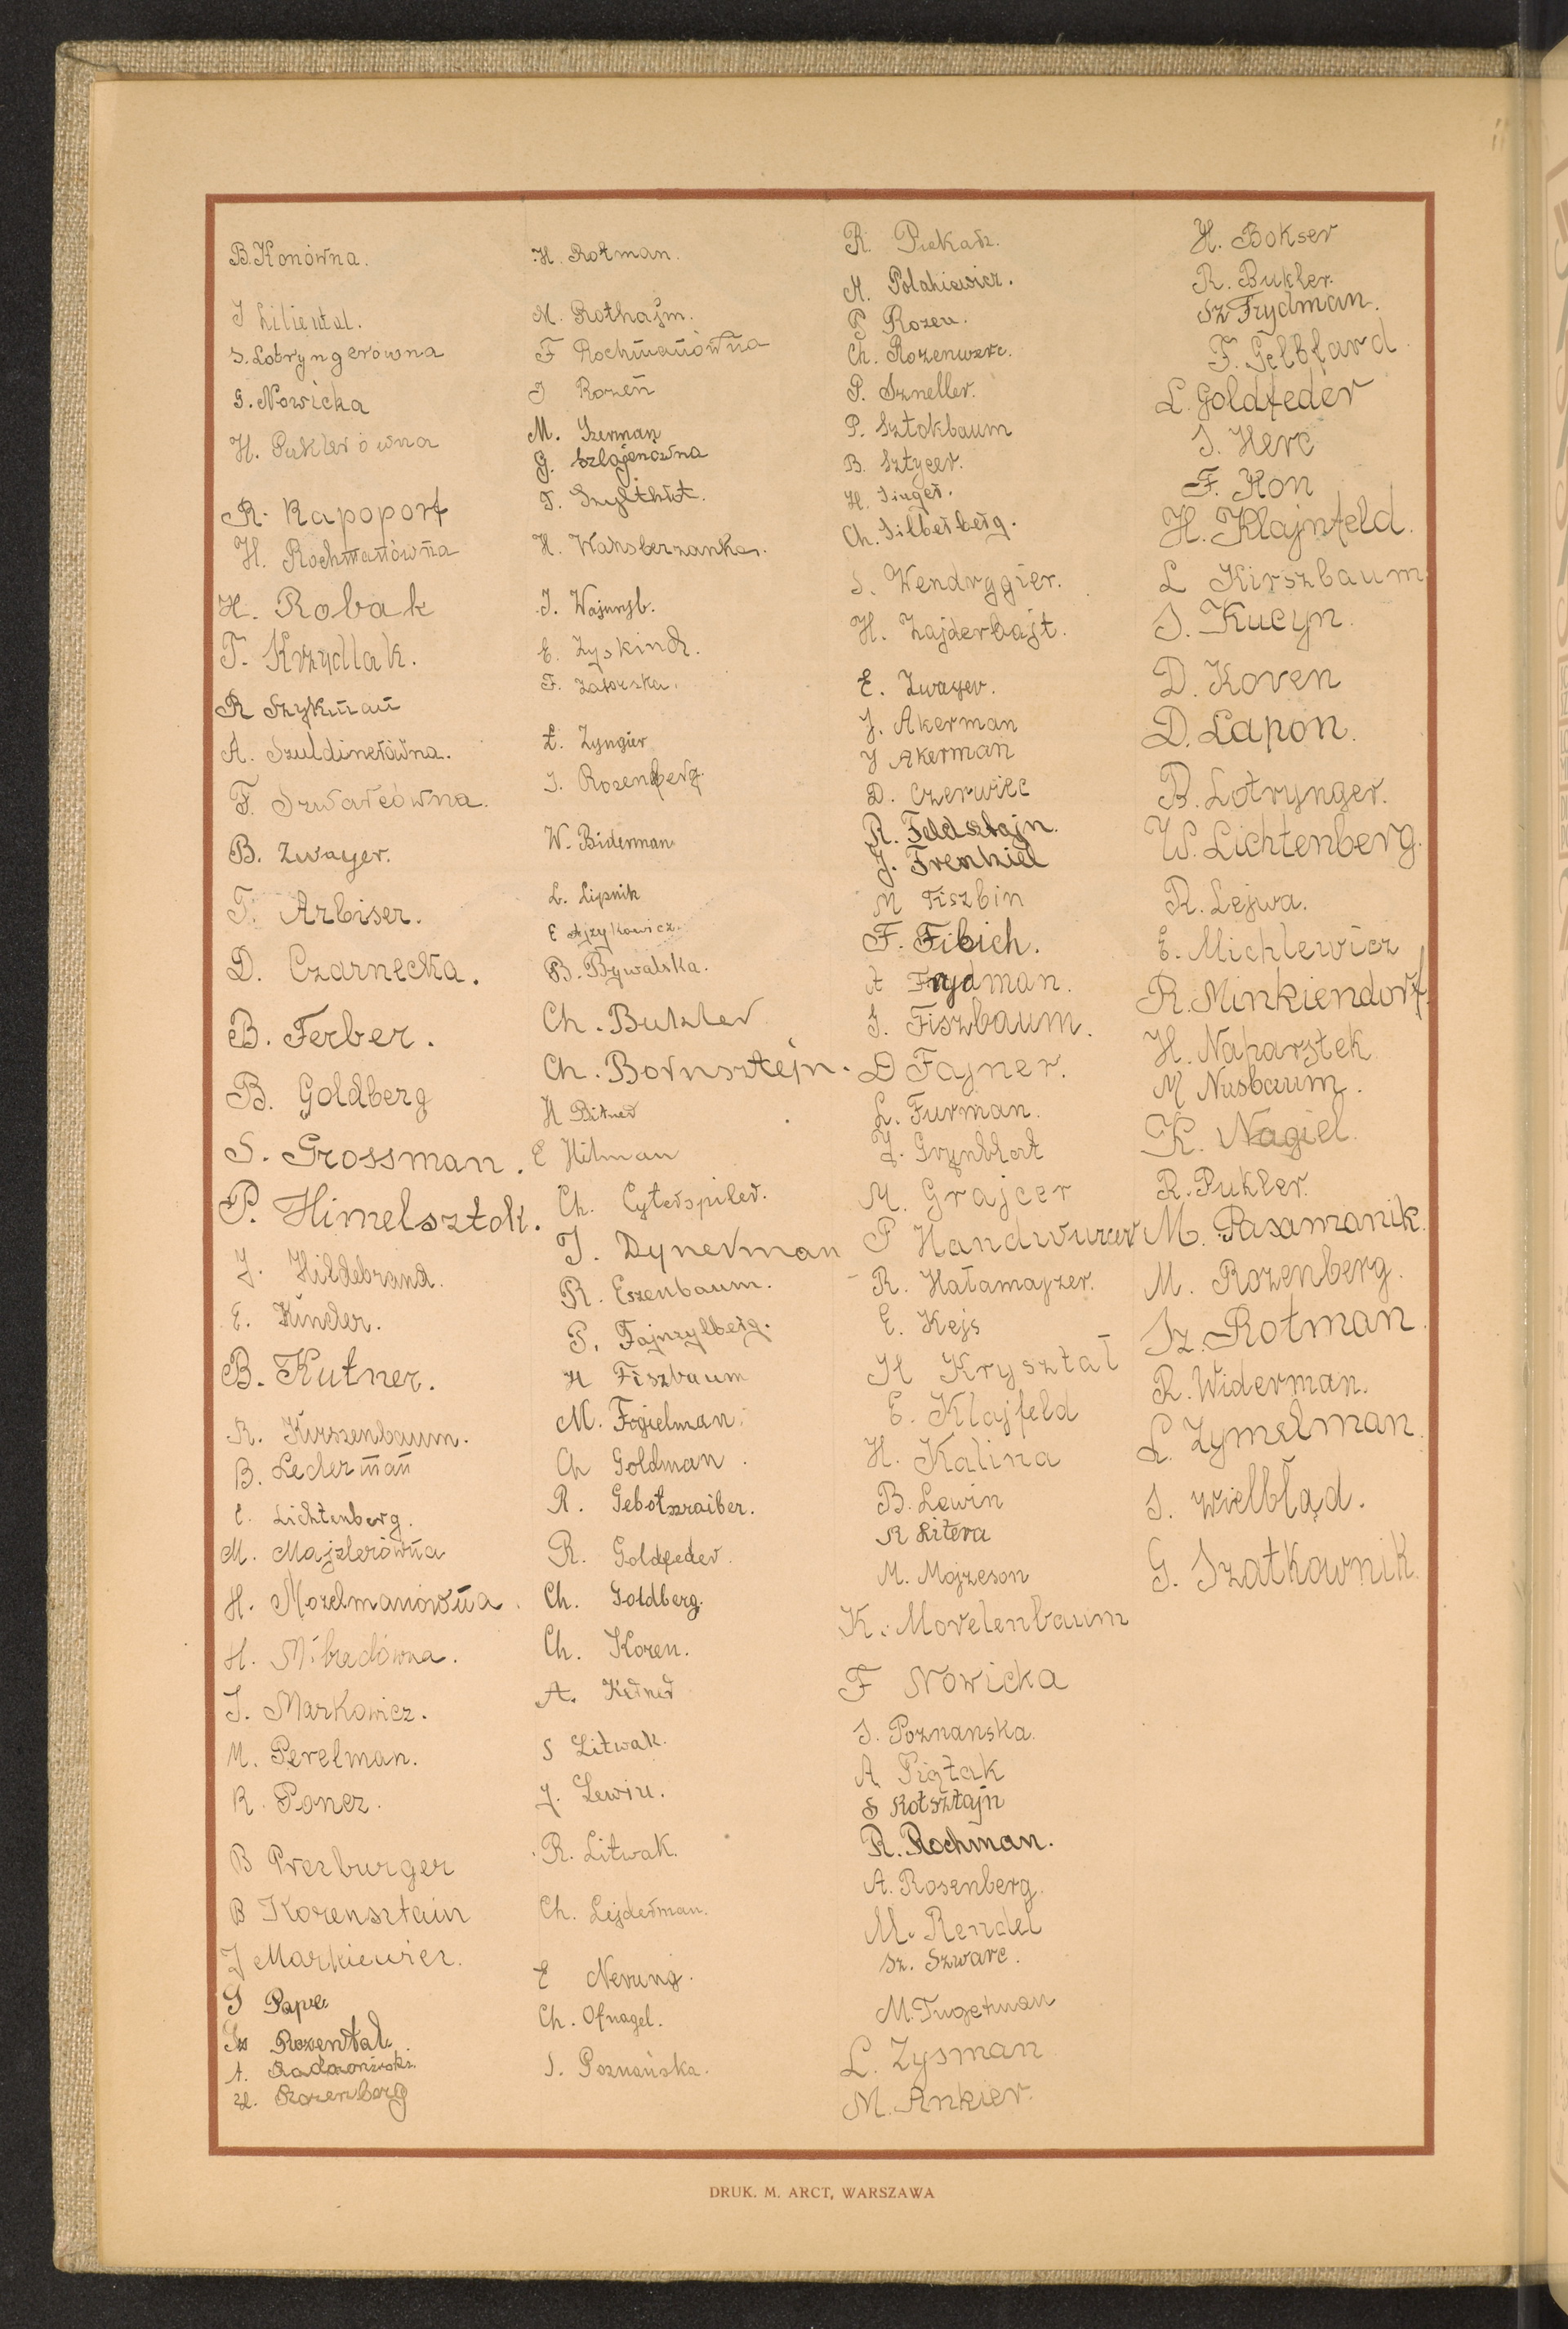 B. Konówna.
J Liliental.
S. Lotryngerówna
G. Nowicka
H. Puklerówna
R. Rapoport
H. Rochmanówna
H. Robak
T. Krzydlak.
R Szykman
A. Szuldinerówna.
F. Szwarcówna.
B. Zwayer.
T. Arbiser.
D. Czarnecka.
B. Ferber.
B. Goldberg
S. Grossman.
P. Himelsztok.
J. Hildebrand.
E. Kinder.
B. Kutner.
R. Kirszenbaum.
B. Lederman
E. Lichtenberg.
M. Majzlerówna
H. Mozelmanówna.
H.
J. Markowicz.
M. Perelman.
R. Poncz.
B Prezburger
B Korensztain
J Markiewicz.
S Papre
Sz Rozental.
A.
H. Rozenberg
H. Rotman.
M. Rothajm.
F Rochmanówna
J Rozen
M. Szerman
G. Szlajenówna
T. Szylthut.
H. Waksberzanka.
J.
E. Zyskind.
F. Zatorska.
E. Zyngier
J. Rozenberg.
W. Biderman
L. Lipnik
E Ajzykowicz.
B. Bywalska.
Ch. Bukler
Ch. Bornsztejn.
H Bitner
E Hilman
Ch. Cyterspiler.
J. Dynerman
R. Eszenbaum.
P. Fajnzylberg.
H Fiszbaum
M. Fogielman.
Ch Goldman.
R. Gebotszraiber.
R. Goldfeder.
Ch. Goldberg.
Ch. Koren.
A. Kerner
S Litwak.
J. Lewin.
R. Litwak.
Ch. Lejderman.
E Nerung.
Ch. Ofnagel.
S. Poznańska.
R. Piekarz.
M. Polakiewicz.
P Rozen.
Ch. Rozenwerc.
P. Szneller.
P. Sztokbaum
B. Sztycer.
H. Singer.
Ch. Silberberg.
S. Wendryggier.
H. Zajderbajt.
E. Zwayer.
J. Akerman
J Akerman
D. Czerwiec
R. Feldsztajn.
J. Frenkiel
M Fiszbin
F. Fibich.
A Frydman.
S. Fiszbaum.
D Fajner.
L. Furman.
J. Grynblat
M. Grajcer
P Handwurcer
R. Hałamajzer.
E. Kejs
H Kryształ
E. Klajfeld
H. Kalina
B. Lewin
R Litera
M. Mojzeson
K. Morelenbaum
F Nowicka
S. Poznanska.
A Piątak
S Rotsztajn
R. Rochman.
A. Rosenberg.
M. Rendel
Sz. Szwarc.
M. Tugetman
L. Zysman
M. Ankier.
H. Bokser
R. Bukler.
Sz Frydman.
F. Gelbfard.
L. Goldfeder
S. Herc
F. Kon
H. Klajnfeld.
L Kirszbaum
S. Kucyn.
D. Koren
D. Lapon.
B. Lotrynger.
W. Lichtenberg.
R. Lejwa.
E. Michlewicz
R. Minkiendorf.
H. Naparstek
M Nusbaum.
K. Nagiel.
R. Pukler.
M. Pasamanik.
M. Rozenberg.
Sz. Rotman.
R. Widerman.
L. Zymelman.
S. Wielbłąd.
G. Szatkownik.
DRUK. M. ARCT, WARSZAWA